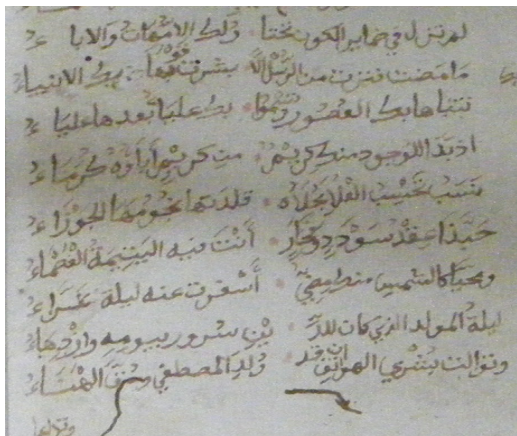 لم تزل في ضماير الكون تختا ر لك الامهات والابا ء
ما مضت فترت من الرسل الا بشرت قومها بك الانبياء
تتباها بك العصور وتسموا بك علياء بعدها علياء
للوجود منك كريم من كريم اباؤه كرماء
نسب تحسب العلا بحلاه قلدتها نجومها الجوزاء
حبذا عقد سودد وفخار أنت فيه اليتيمة العصماء
ومحيا كالشمس منك مضيئ أسفرت عنه ليلة غراء
ليلة المولد الذي كان للد ين سرور بيومه وازدهاء
وتوالت بشرى الهواتف ان قد ولد المصطفى وحق الهناء